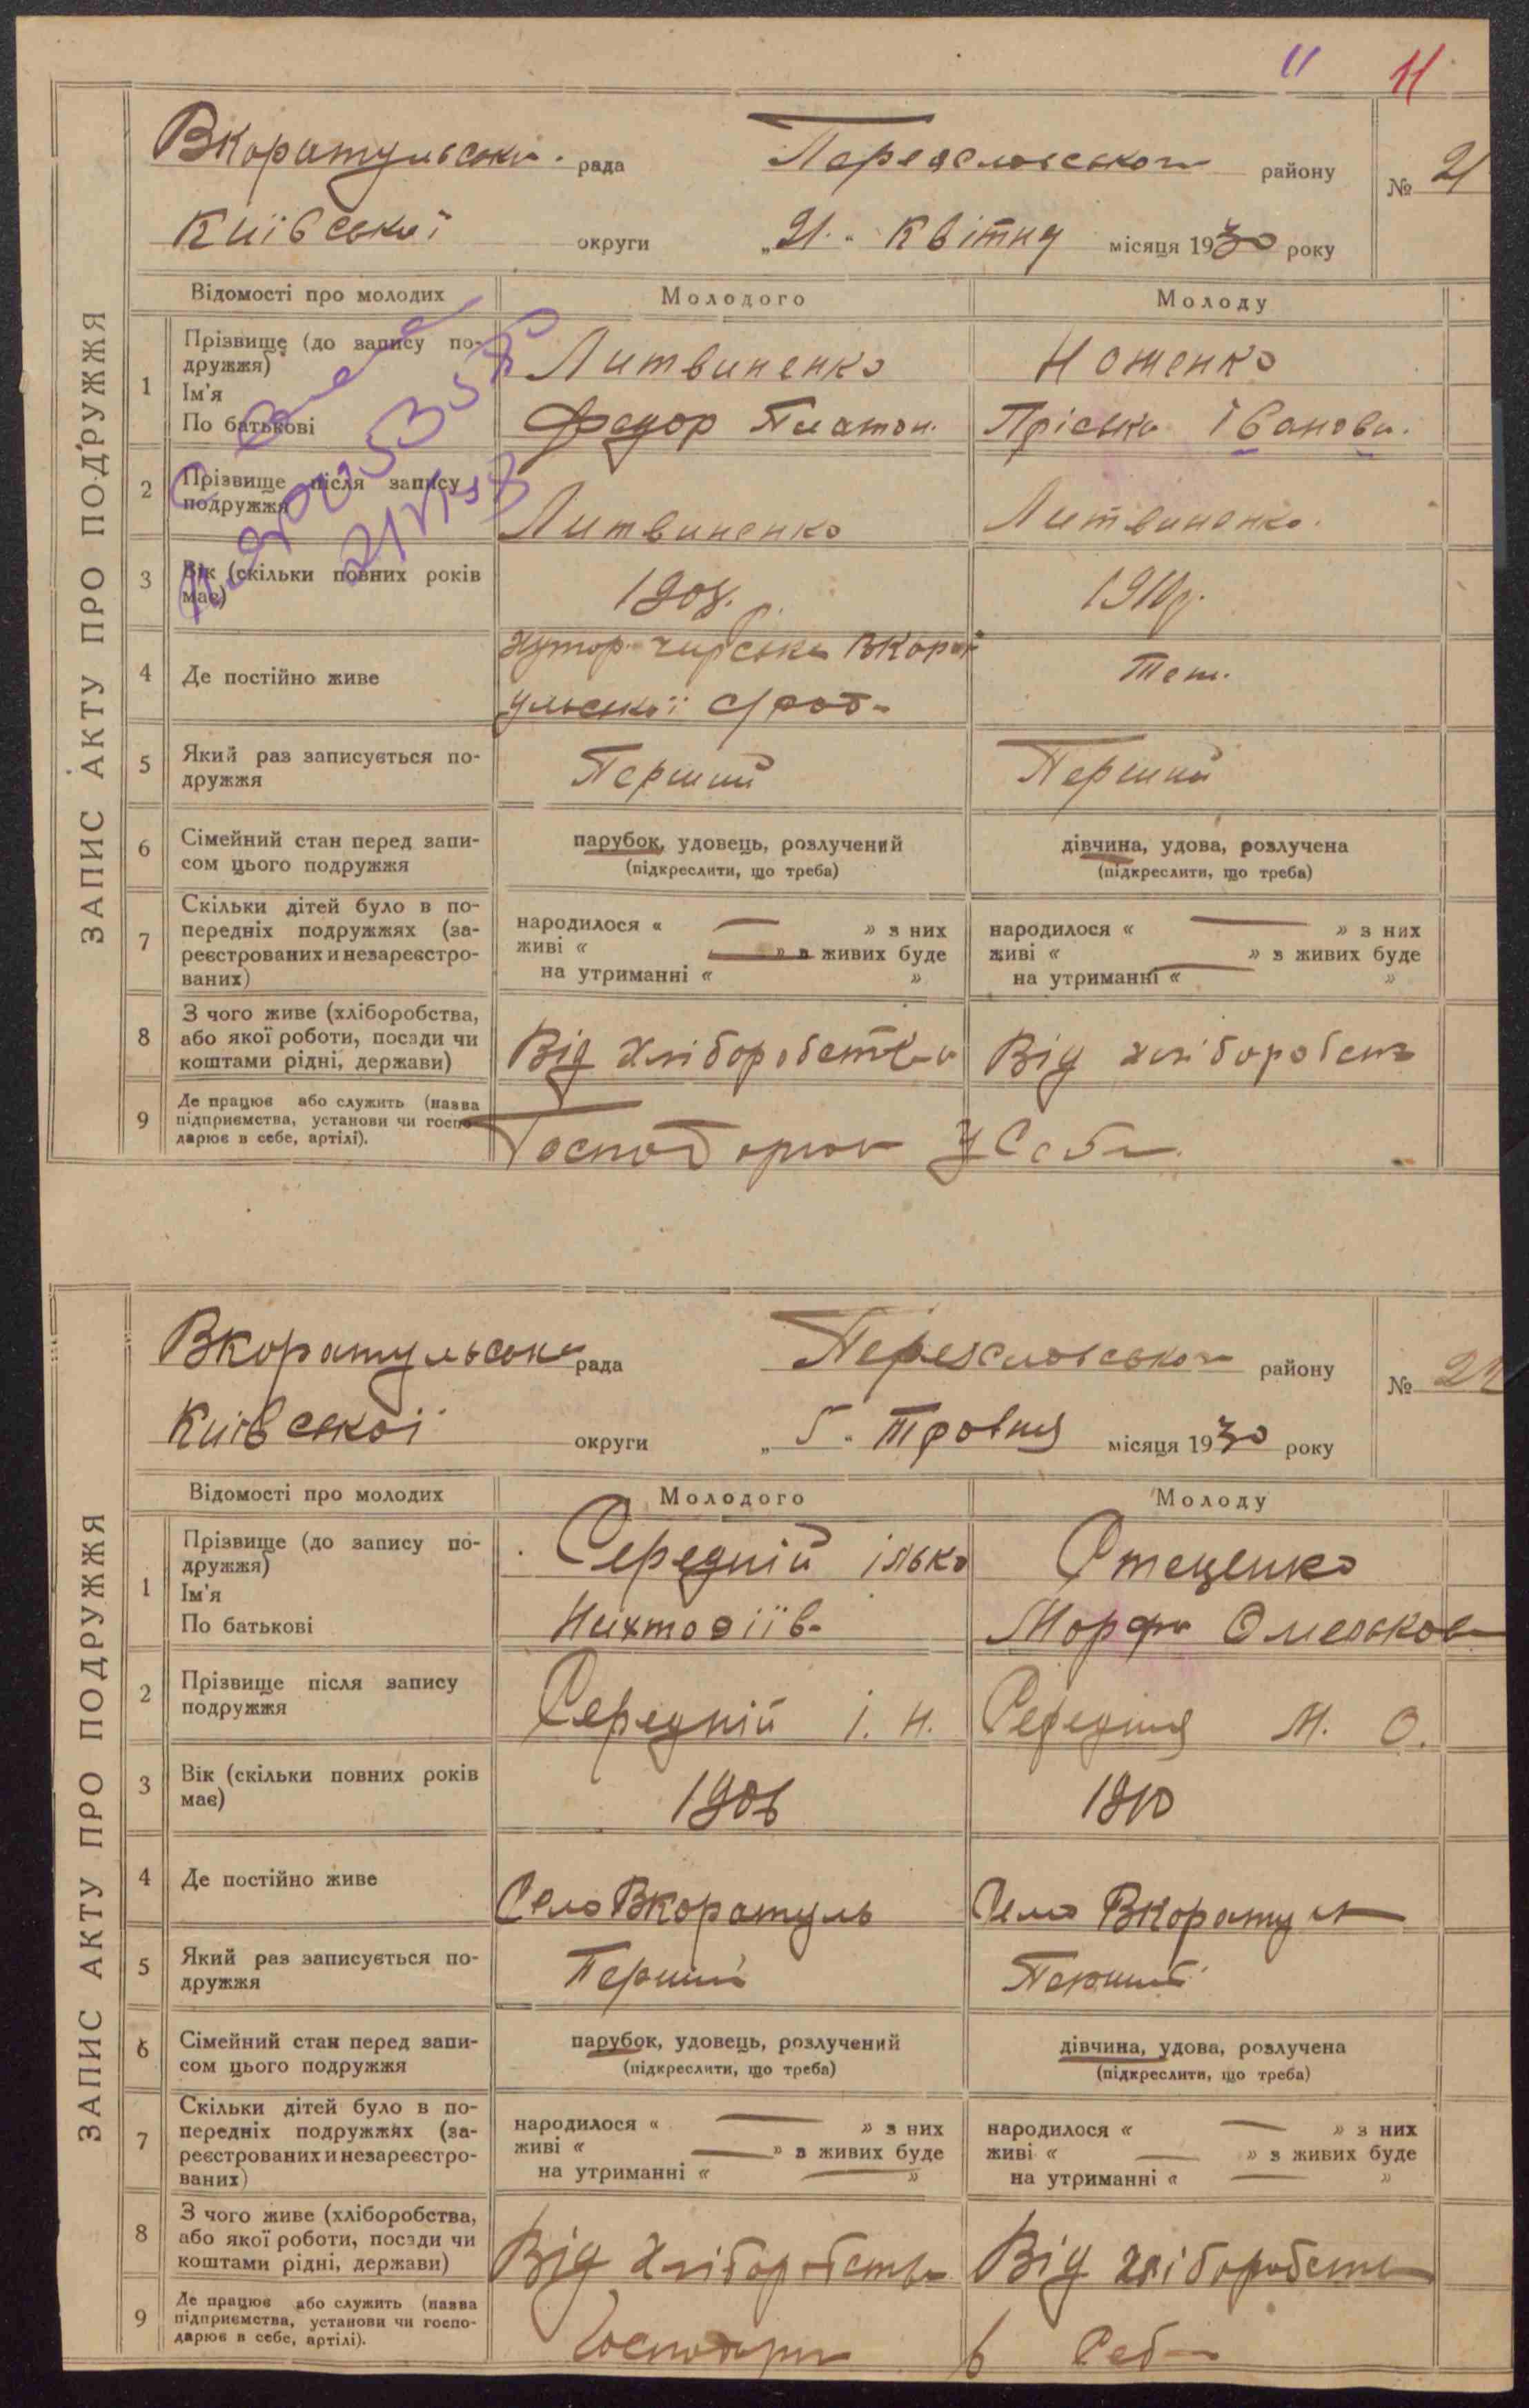 11 11
ЗАПИС АКТУ ПРО ПОДРУЖЖЯ
Вкоратульська рада Переяславського району № 21
Київської округи „21“ Квітня місяця 1930 року
Відомості про молодих Молодого Молоду
1 Прізвище (до запису по-
дружжя) Литвиненко Ноженко
Ім'я
По батькові Федор Платон. Пріська Іванова.
2 Прізвище після запису
подружжя Литвиненко Литвиненко.
3 Вік (скільки повних років
має) 1908. 1910р.
4 Де постійно живе хутор Чирське Вкорат
ульської с/рад Теж.
5 Який раз записується по-
дружжя Перший Перший
6 Сімейний стан перед запи-
сом цього подружжя
парубок, удовець, розлучений
(підкреслити, що треба)
дівчина, удова, розлучена
(підкреслити, що треба)
7 Скільки дітей було в по-
передніх подружжях (за-
реєстрованих и незареєстро-
ваних)
народилося « — » з них
живі « — » з живих буде
на утриманні « »
народилося « — » з них
живі « » з живих буде
на утриманні « — »
8 З чого живе (хліборобства,
або якої роботи, посади чи
коштами рідні, держави) Від хліборобства Від хліборобств
9 Де працює або служить (назва
підприємства, установи чи госпо-
дарює в себе, артілі). Господарює у Себе
ЗАПИС АКТУ ПРО ПОДРУЖЖЯ
Вкоратульська рада Переяславського району №
Київської округи „5“ Травня місяця 1930 року
Відомості про молодих Молодого Молоду
1 Прізвище (до запису по-
дружжя) Середній Ілько Стеценко
Ім'я
По батькові Нихтоїів Морфа Омельков
2 Прізвище після запису
подружжя Середній І. Н. Середня М. О.
3 Вік (скільки повних років
має) 1906 1910
4 Де постійно живе Село Вкоратуль Село Вкоратул
5 Який раз записується по-
дружжя Перший Перший
6 Сімейний стан перед запи-
сом цього подружжя
парубок, удовець, розлучений
(підкреслити, що треба)
дівчина, удова, розлучена
(підкреслити, що треба)
7 Скільки дітей було в по-
передніх подружжях (за-
реєстрованих и незареєстро-
ваних)
народилося « — » з них
живі « — » з живих буде
на утриманні « — »
народилося « — » з них
живі « — » з живих буде
на утриманні « — »
8 З чого живе (хліборобства,
або якої роботи, посади чи
коштами рідні, держави) Від хліборобств Від хліборобств
9 Де працює або служить (назва
підприємства, установи чи госпо-
дарює в себе, артілі). Господарює в Себе